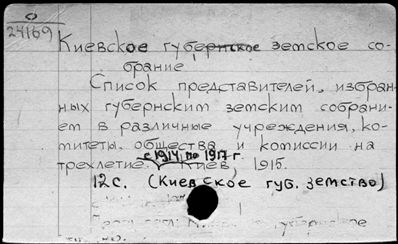 0
24169
Киевское губернское земское со-
брание
Список представителей, избран-
ных губернским земским собрани-
ем в различные учреждения, ко-
митеты, общества и комиссии на
трехлетие с 1914 по 1917 г.
Киев, 1915.
12 с. (Киевское губ. земство)